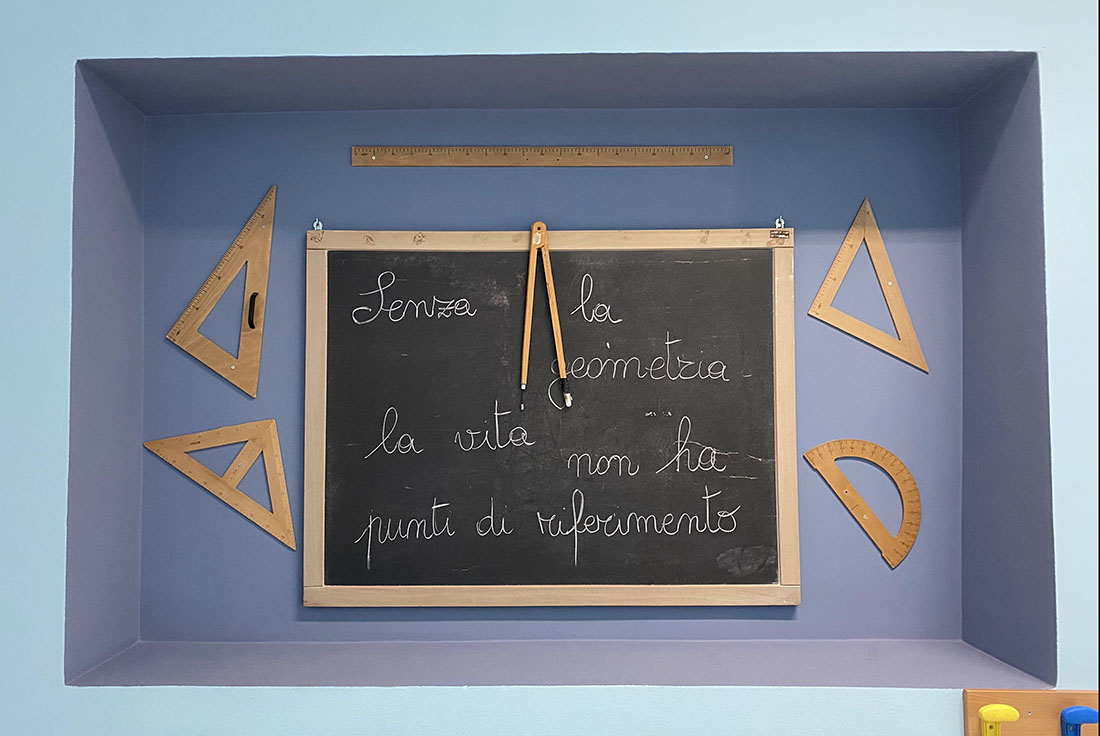 Senza la
geometria
la vita
non ha
punti di riferimento